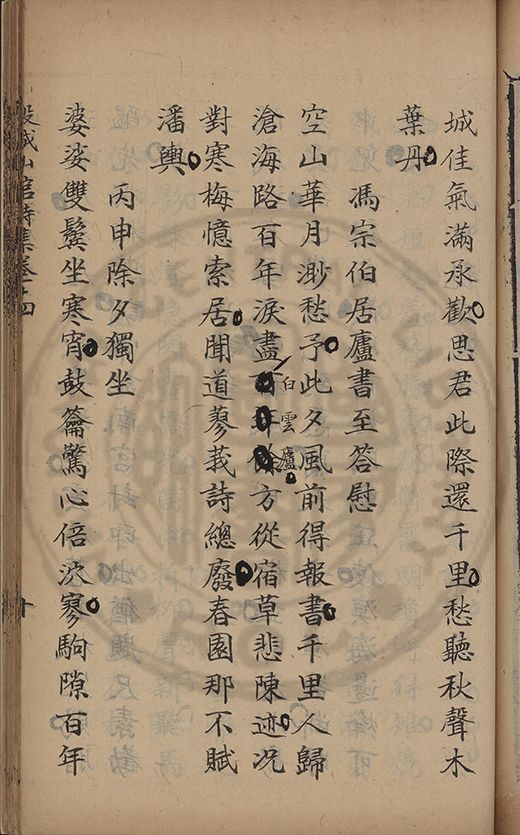 城佳氣滿承歡思君此際還千里愁聽秋聲木
葉丹
馮宗伯居廬書至答慰
空山華月渺愁予此夕風前得報書千里人歸
滄海路百年淚盡白雲廬方從宿草悲陳迹况
對寒梅憶索居聞道蓼莪詩總廢春園那不賦
潘輿
丙申除夕獨坐
婆娑雙鬢坐寒宵鼓籥驚心倍泬寥駒隙百年
山館詩集卷十四
十